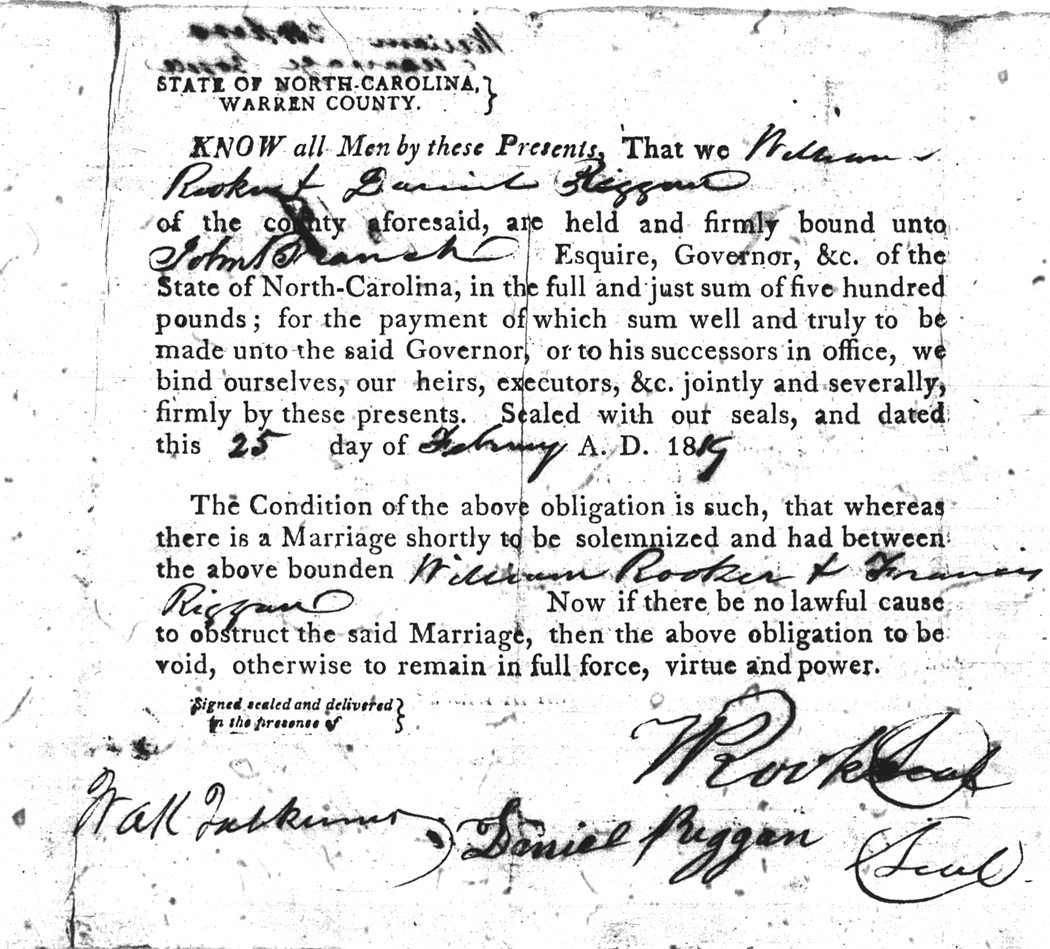 STATE OF NORTH-CAROLINA,
WARREN COUNTY.
KNOW all Men by these Presents, That we William
Rooker & Daniel Riggan
of the county aforesaid, are held and firmly bound unto
John Branch Esquire, Governor, &c. of the
State of North-Carolina, in the full and just sum of five hundred
pounds; for the payment of which sum well and truly to be
made unto the said Governor, or to his successors in office, we
bind ourselves, our heirs, executors, &c. jointly and severally,
firmly by these presents. Sealed with our seals, and dated
this 25 day of Februay A. D. 1819
The Condition of the above obligation is such, that whereas
there is a Marriage shortly to be solemnized and had between
the above bounden William Rooker & Frances
Riggan Now if there be no lawful cause
to obstruct the said Marriage, then the above obligation to be
void, otherwise to remain in full force, virtue and power.
Signed sealed and delivered
in the presence of
W Rooker Seal
Daniel Riggan Seal